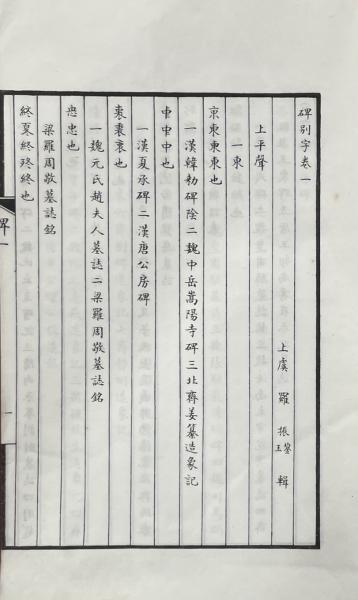 碑別字卷一
上虞羅振鋆
玉輯
上平聲
一東
東東東東也
一漢韓勑碑陰二魏中岳嵩陽寺碑三北齊姜纂造象記
中中中也
一漢夏承碑二漢唐公房碑
衷衷衷也
一魏元氏趙夫人墓誌二梁羅周敬墓誌銘
忠也
梁羅周敬墓誌銘
終夏終終終也
碑
一